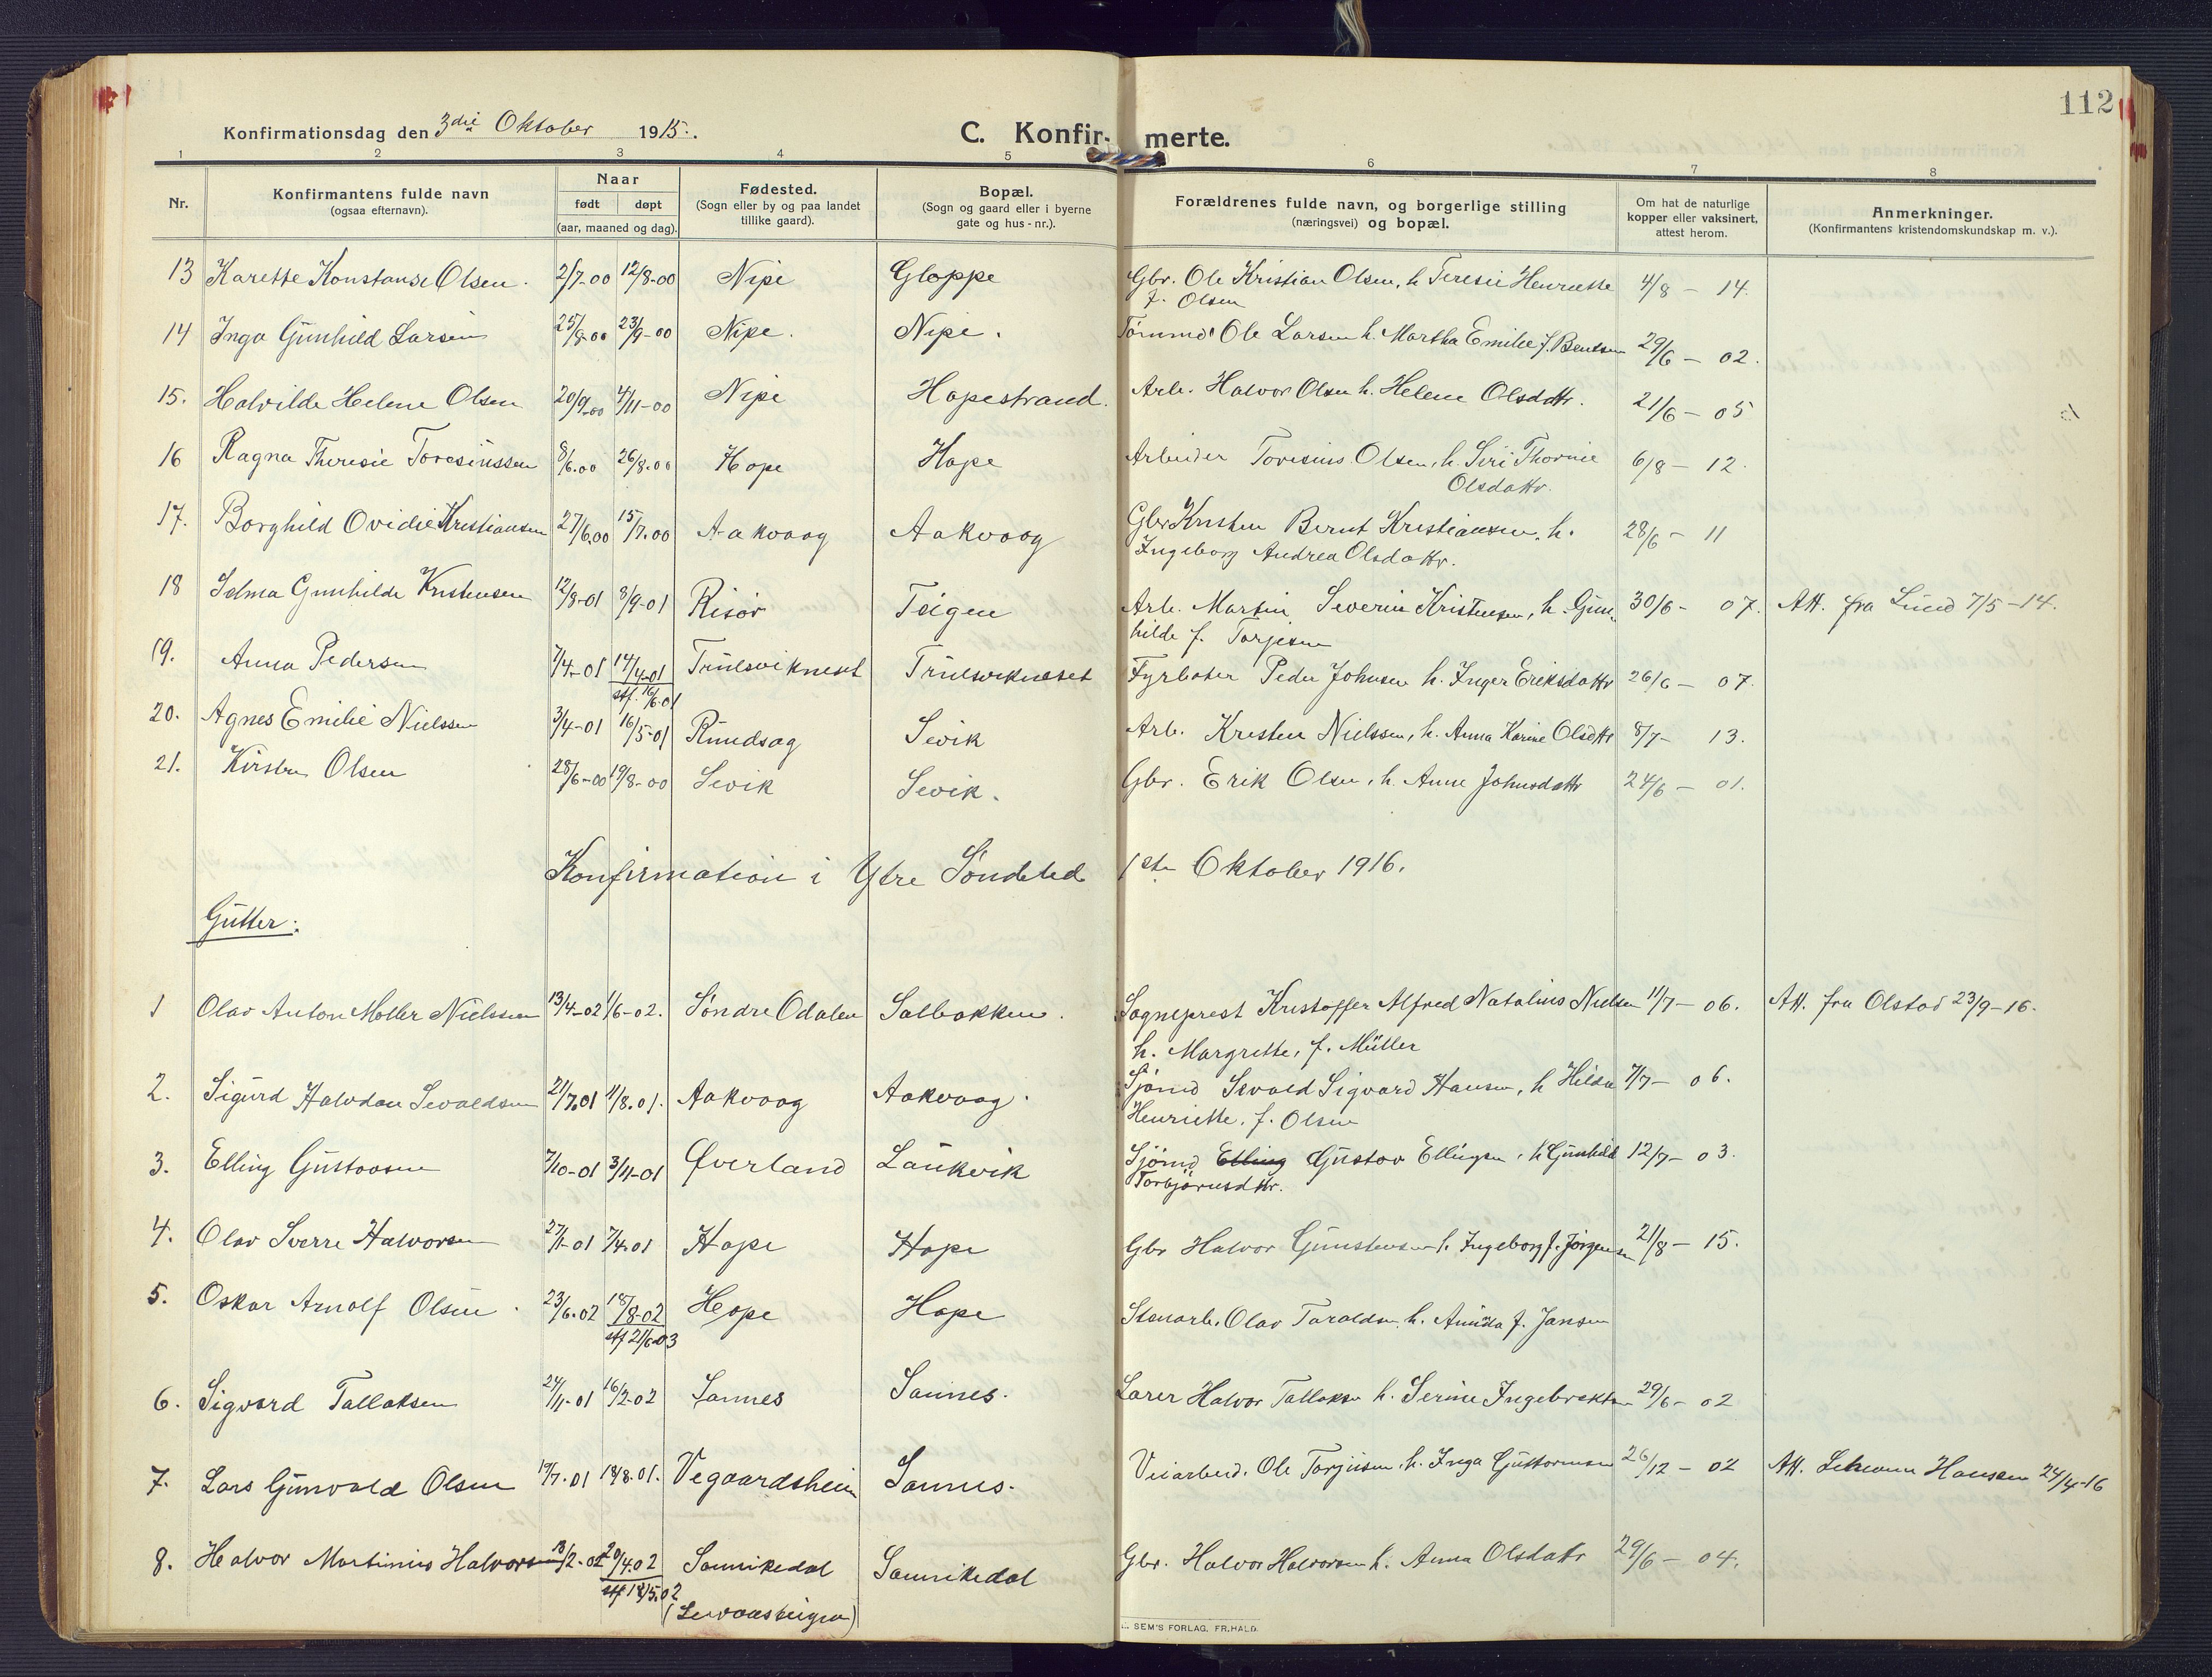 112
Konfirmationsdag den 3die Oktober 1915.
C. Konfir- merte.
1 2 3 4 5 6 7 8
Nr.
Konfirmantens fulde navn
(ogsaa efternavn).
Naar
født døpt
(aar, maaned og dag).
Fødested.
(Sogn eller by og paa landet
tillike gaard).
Bopæl.
(Sogn og gaard eller i byerne
gate og hus-nr.).
Forældrenes fulde navn, og borgerlige stilling
(næringsvei) og bopæl.
Om hat de naturlige
kopper eller vaksinert,
attest herom.
Anmerkninger.
(Konfirmantens kristendomskundskap m. v.).
13 Karette Konstanse Olsen. 2/7-00 12/8-00 Nipe Gloppe Gbr. Ole Kristian Olsen, h. Teresie Henriette 4/8 - 14.
f. Olsen
14 Inga Gunhild Larsen 25/8-00 23/9-00 Nipe. Nipe. Tømmd. Ole Larsen h. Martha Emilie f. Bentsen 29/6 - 02.
15. Halvilde Helene Olsen 20/9-00 4/11-00 Nipe Hopestrand. Arb. Halvor Olsen h. Helene Olsdattr. 21/6 - 05
16 Ragna Theresie Toresinssen 8/6.00 26/8.00 Hope Hope Arbeider Toresius Olsen, h. Siri Thorine 6/8 - 12.
Olsdattr.
17. Borghild Ovidie Kristiansen 27/6.00 15/7.00 Aakvaag Aakvaag Gbr Kristen Bernt Kristiansen, h. 28/6 - 11
Ingeborg Andrea Olsdattr.
18 Selma Gunhilde Kristensen 12/8-01 8/9-01 Risör Teigen Arb. Martin Severin Kristensen, h. Gun- 30/6 - 07. Att. fra Lund 7/5-14.
hilde f. Torjesen
19. Anna Pedersen 7/4-01 14/4-01 Trulsviknest Trulsvikneset Fyrbøter Peder Johnsen h. Inger Eriksdattr 26/6 - 07.
stf. 16/6.01
20. Agnes Emilie Nielssen 3/4-01 16/5-01 Rundsag Sevik Arb. Kristen Nielssen, h. Anna Karine Olsdttr 8/7 - 13.
21. Kirsten Olsen 28/6-00 19/8-00 Sevik Sevik. Gbr. Erik Olsen, h. Anne Johnsdattr 24/6 - 01.
Konfirmation i Ytre Söndeled 1ste Oktober 1916.
Gutter:
1 Olav Anton Møller Nielssen 13/4-02 1/6-02. Søndre Odalen Solbakken. Sogneprest Kristoffer Alfred Natalius Nielsen 11/7 - 06. Att. fra Olstad 23/9-16.
h. Margrethe, f. Müller
2. Sigurd Halvdan Sevaldsen 21/7.01 11/8.01. Aakvaag Aakvaag. Sjømd Sevald Sigvard Hansen, h Hilda 7/7 - 06.
Henriette, f. Olsen
3. Elling Gustavsen 7/10-01 3/11-01 Øverland Laukvik Sjømd Elling Gustav Ellingsen, h Gunhild 12/7 - 03.
Torbjørnsdttr.
4. Olav Sverre Halvorsen 27/1-01 7/4.01 Hope Hope Gbr Halvor Gunstensen h. Ingeborg f. Jørgensen 21/8 - 15.
5. Oskar Arnolf Olsen. 23/6.02 18/8-02 Hope Hope Stenarb. Olav Taraldsen, h. Amida f. Jansen
stf 21/6-03
6. Sigvard Tallaksen 24/11-01 16/2-02 Sannes Sannes. Lærer Halvor Tallaksen h. Serine Ingebrektsen 29/6 - 02
7. Lars Gunvald Olsen 19/7.01 18/8.01. Vegaardsheim Sannes. Veiarbeid. Ole Torjusen, h. Inga Guttormsen 26/12 - 02 Att. Lehmann Hansen 24/4-16
8. Halvor Martinius Halvorsen 18/2-02 20/4.02 Sannikedal Sannikedal Gbr. Halvor Halvorsen h. Anna Olsdatr 29/6 - 04.
stf 18/5.02
SEM'S FORLAG, FR.HALD.